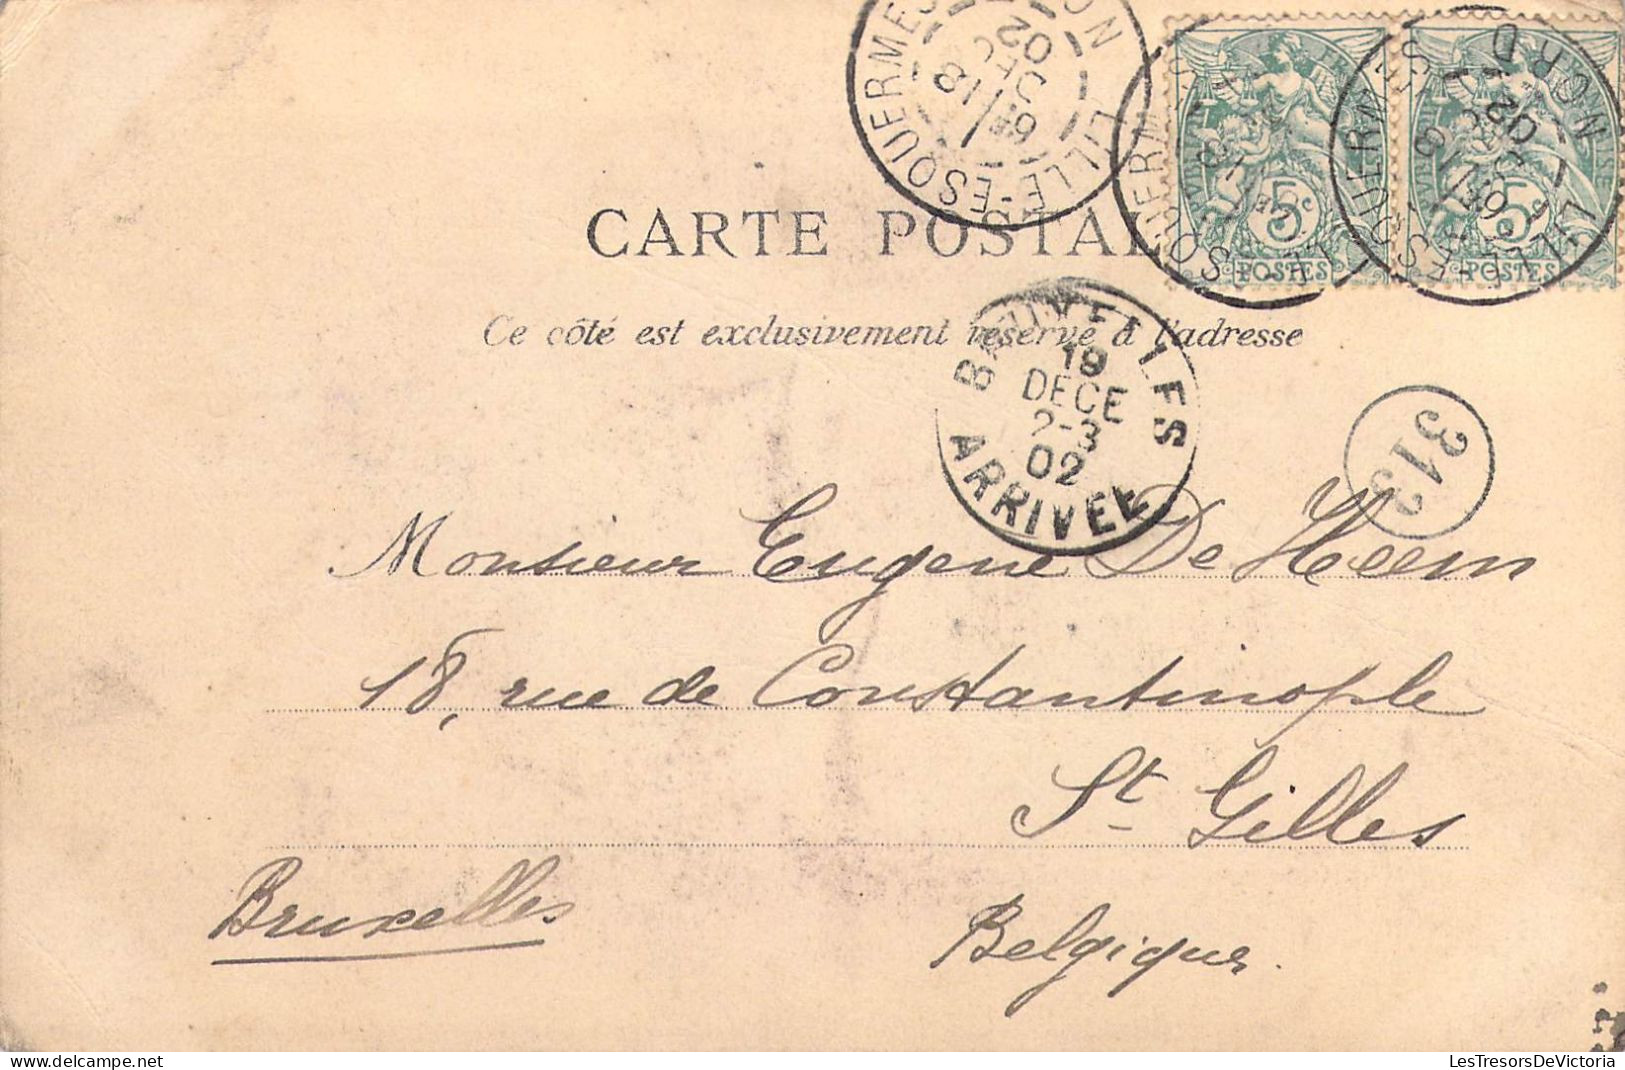 LILLE-ESQUERMES
NORD
6E/18
DEC
02
POSTES
5c
POSTES
5c
CARTE POSTALE
Ce côté est exclusivement réservé à l'adresse
BRUXELLES
19
DECE
2-3
02
ARRIVEE
313
Monsieur Eugene De Heem
18, rue de Constantinople
St Gilles
Bruxelles
Belgique.
LesTresorsDeVictoria